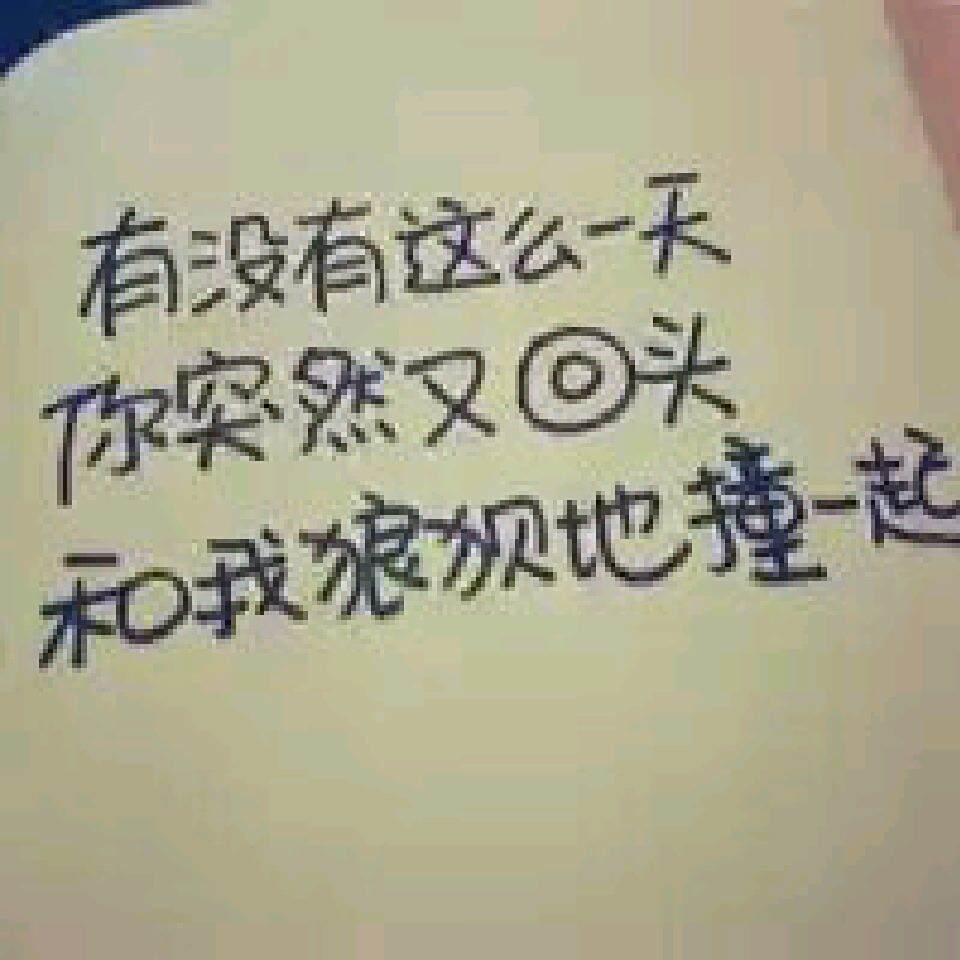 有没有这么一天
你突然又回头
和我狼狈地撞一起